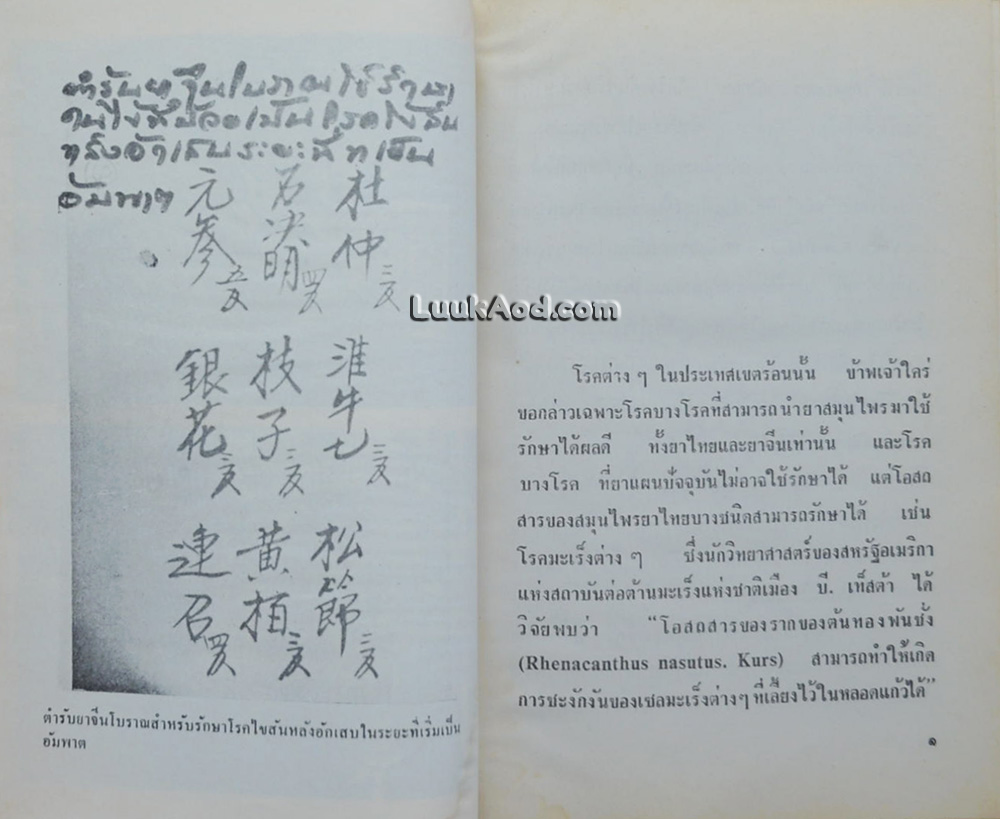 ตำรับยาจีนโบราณใช้รักษา
คนไข้ที่ป่วยเป็นโรคไขสัน
หลังอักเสบระยะที่เป็น
อัมพาต
杜仲 三錢
石决明 四錢
元参 五錢
淮牛七 三錢
枝子 二錢
銀花 三錢
松節 三錢
黄栢 三錢
連召 四錢
ตำรับยาจีนโบราณสำหรับรักษาโรคไขสันหลังอักเสบในระยะที่เริ่มเป็น
อัมพาต
LuukAod.com
โรคต่าง ๆ ในประเทศเขตร้อนนั้น ข้าพเจ้าใคร่
ขอกล่าวเฉพาะโรคบางโรคที่สามารถนำยาสมุนไพรมาใช้
รักษาได้ผลดี ทั้งยาไทยและยาจีนเท่านั้น และโรค
บางโรค ที่ยาแผนปัจจุบันไม่อาจใช้รักษาได้ แต่โอสถ
สารของสมุนไพรยาไทยบางชนิดสามารถรักษาได้ เช่น
โรคมะเร็งต่าง ๆ ซึ่งนักวิทยาศาสตร์ของสหรัฐอเมริกา
แห่งสถาบันต่อต้านมะเร็งแห่งชาติเมือง บี. เท็สด้า ได้
วิจัยพบว่า "โอสถสารของรากของต้นทองพันชั่ง
(Rhenacanthus nasutus. Kurs) สามารถทำให้เกิด
การชะงักงันของเซลมะเร็งต่างๆ ที่เลี้ยงไว้ในหลอดแก้วได้"
๑